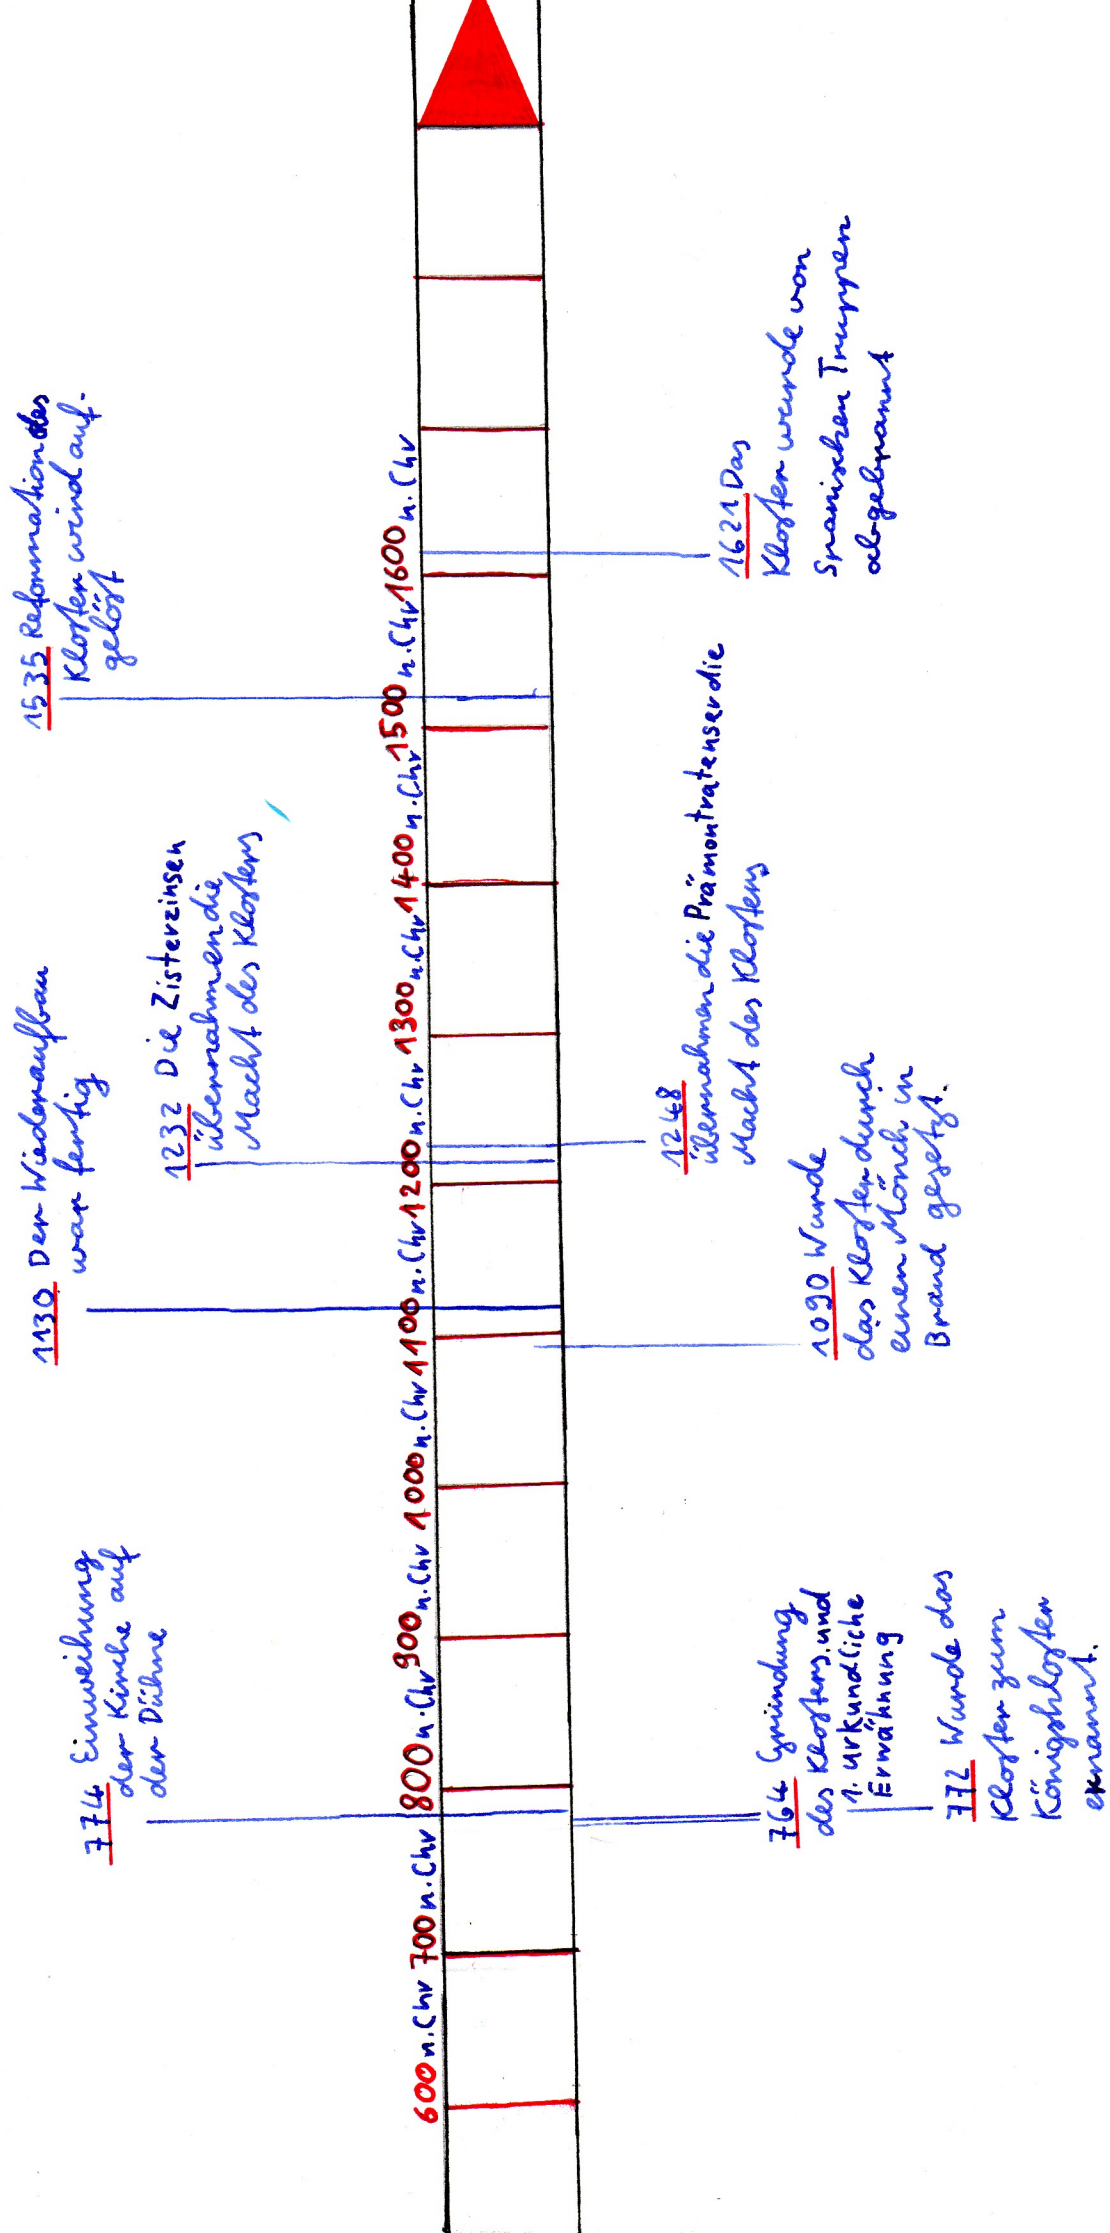 774 Einweihung
der Kirche auf
der Dühne
1130 Der Wiederaufbau
war fertig
1232 Die Zisterzinsen
übernahmen die
Macht des Klosters
1535 Reformation des
Kloster wird auf-
gelöst
600 n. Chr 700 n. Chr 800 n. Chr 900 n. Chr 1000 n. Chr 1100 n. Chr 1200 n. Chr 1300 n. Chr 1400 n. Chr 1500 n. Chr 1600 n. Chr
764 Gründung
des Klosters, und
1. urkundliche
Erwähnung
772 Wurde das
Kloster zum
Königskloster
ernannt.
1090 Wurde
das Kloster durch
einen Mönch in
Brand gesetzt.
1248
übernahmen die Prämontratenser die
Macht des Klosters
1621 Das
Kloster wurde von
Spanischen Truppen
abgebrannt